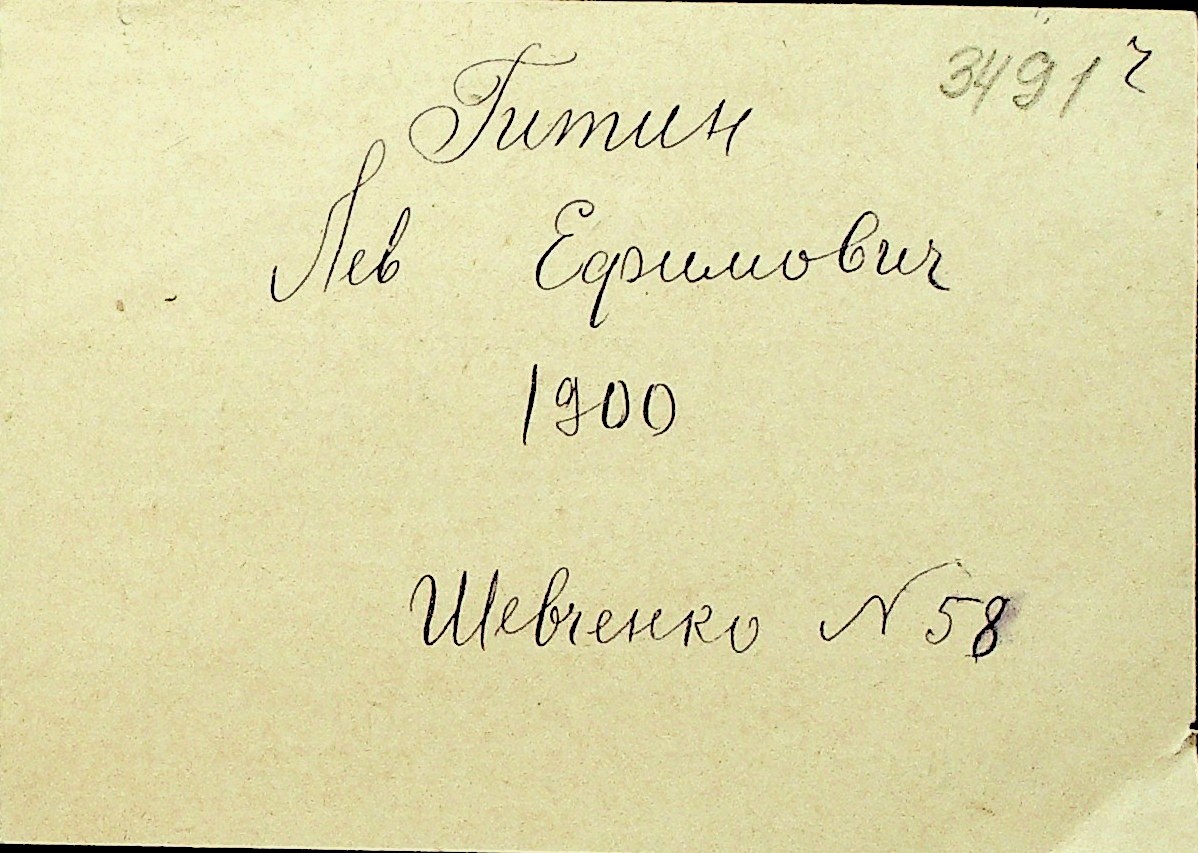 3491 ч
Гитин
Лев Ефимович
1900
Шевченко N 58